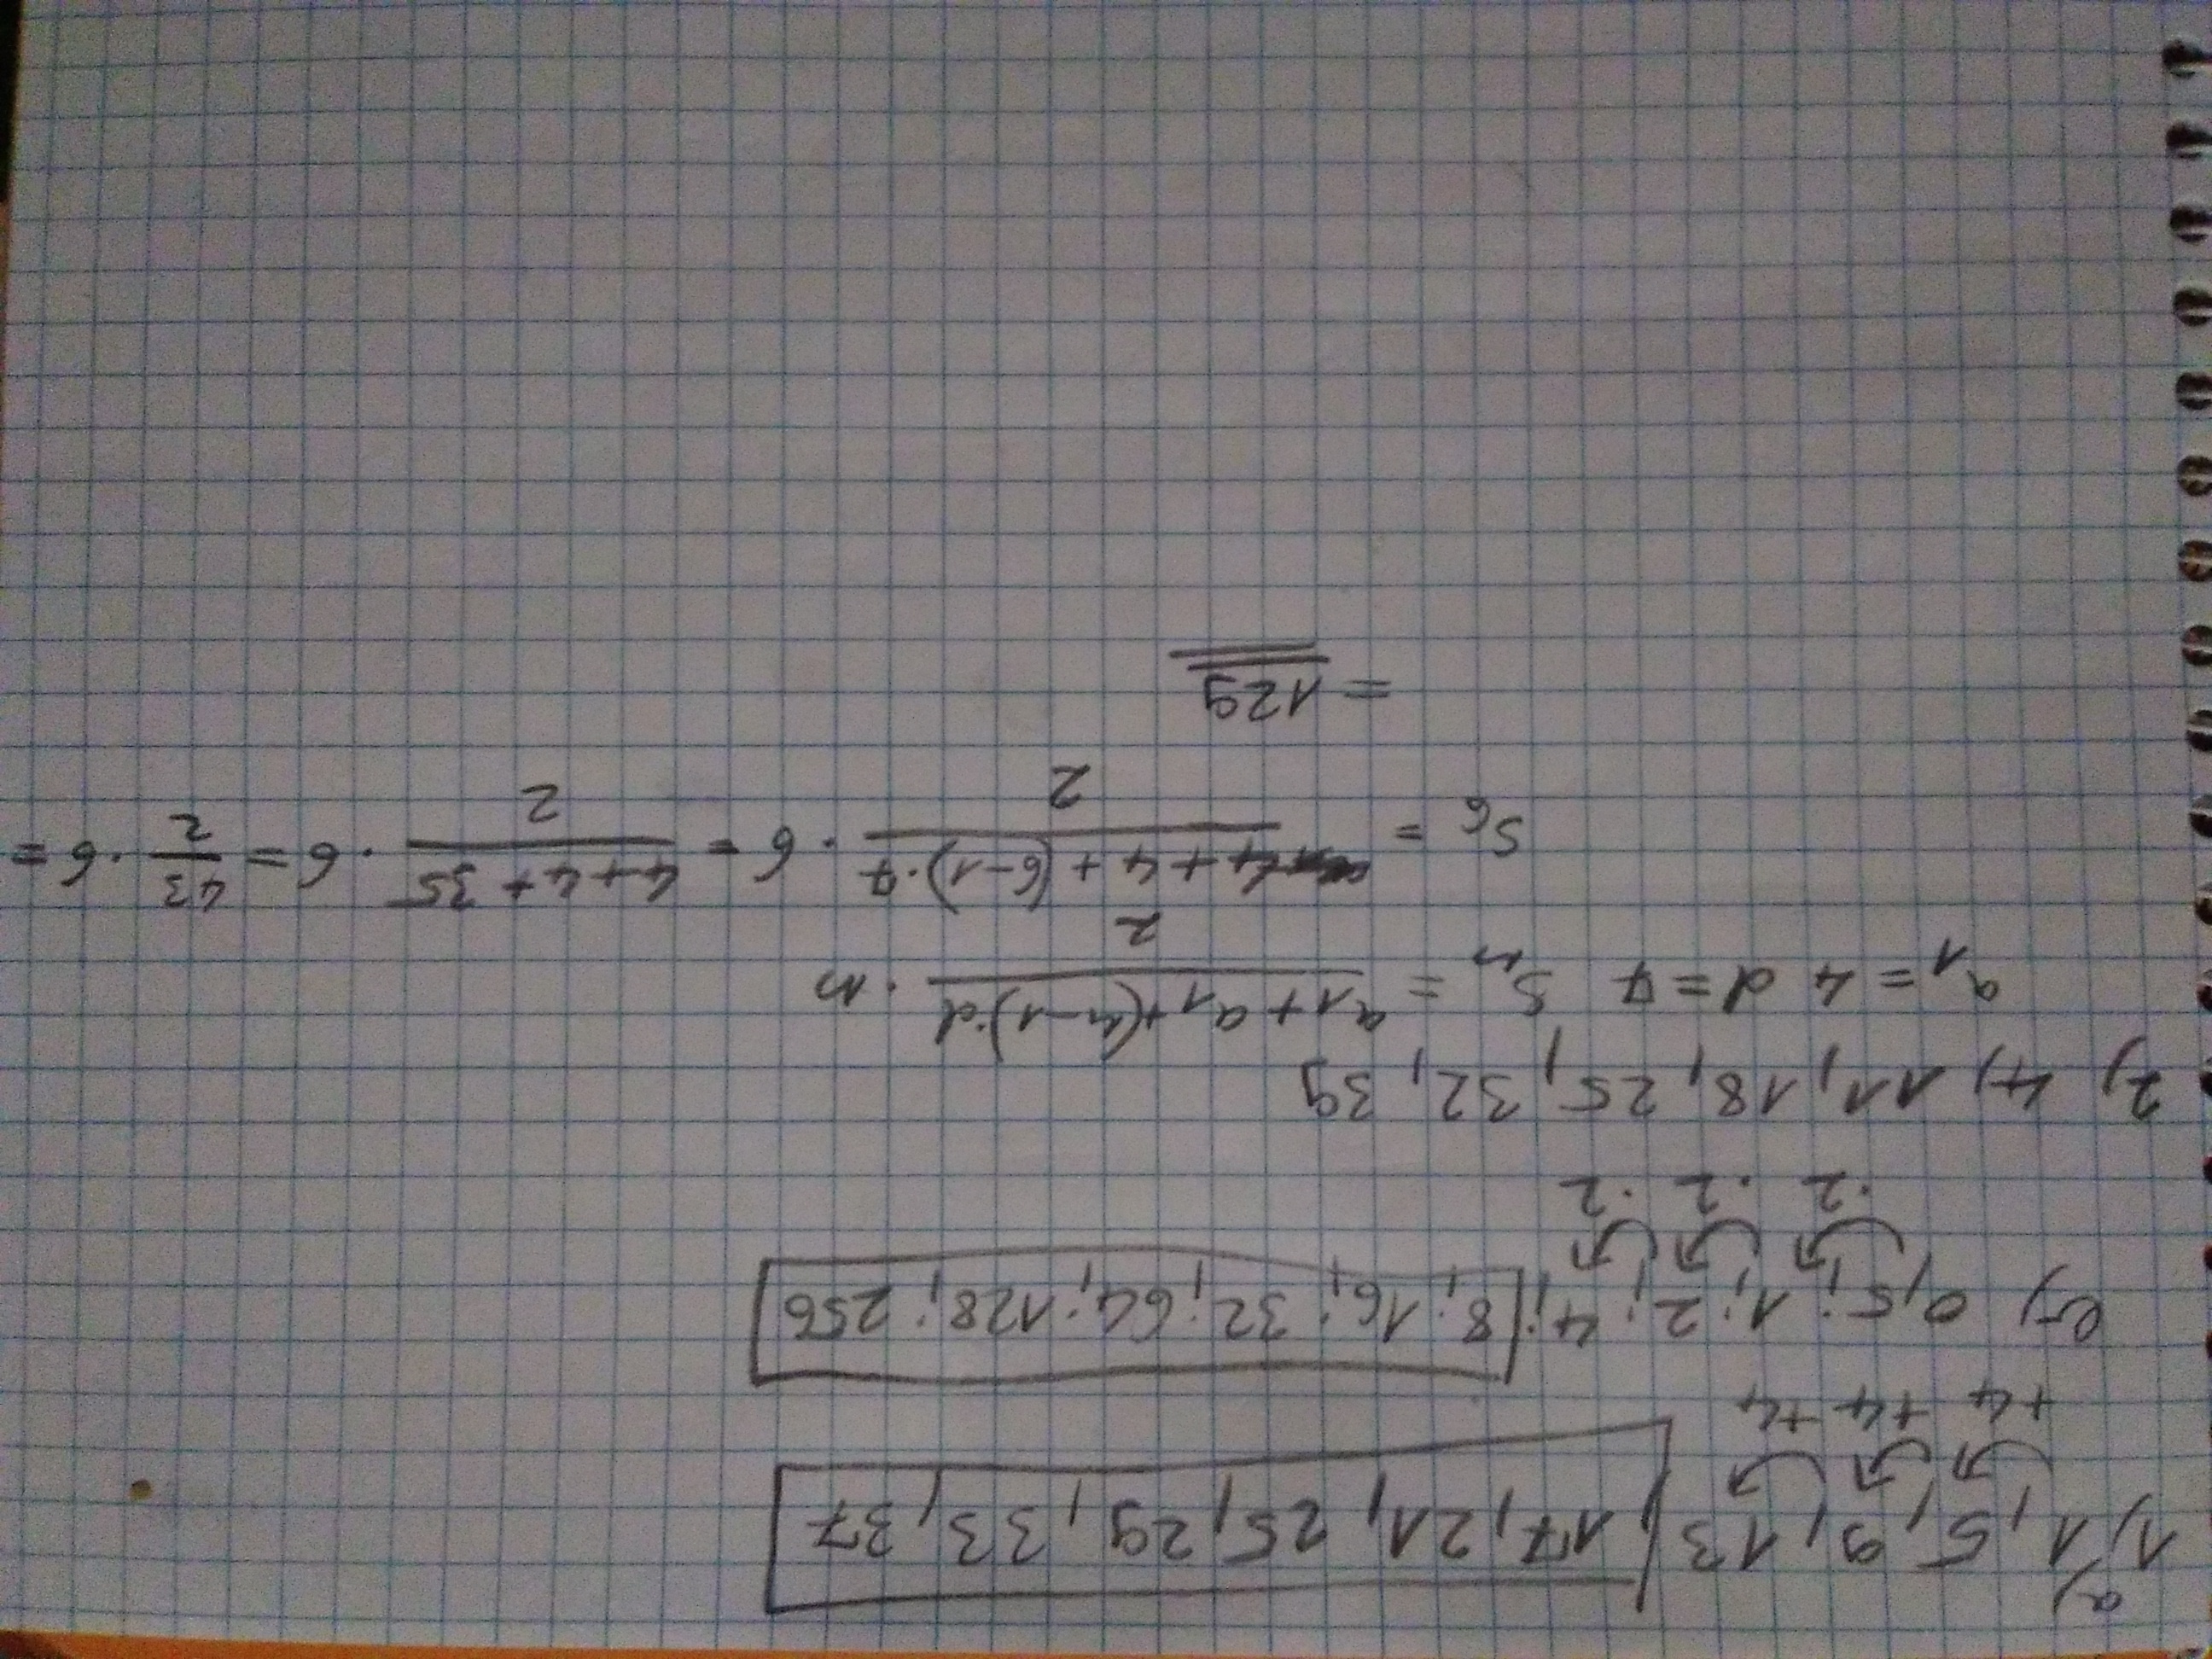 a)
1, 1, 5, 9, 13 17, 21, 25, 29, 33, 37
+4 +4 +4
b) 0,5; 1; 2; 4; 8; 16; 32; 64; 128; 256
·2 ·2 ·2
2, 4, 11, 18, 25, 32, 39
a₁ = 4 d = 7 Sₙ = (a₁ + a₁ + (n-1)·d)/2 · n
S₆ = (4 + 4 + (6-1)·7)/2 · 6 = (4 + 4 + 35)/2 · 6 = 43/2 · 6 =
= 129